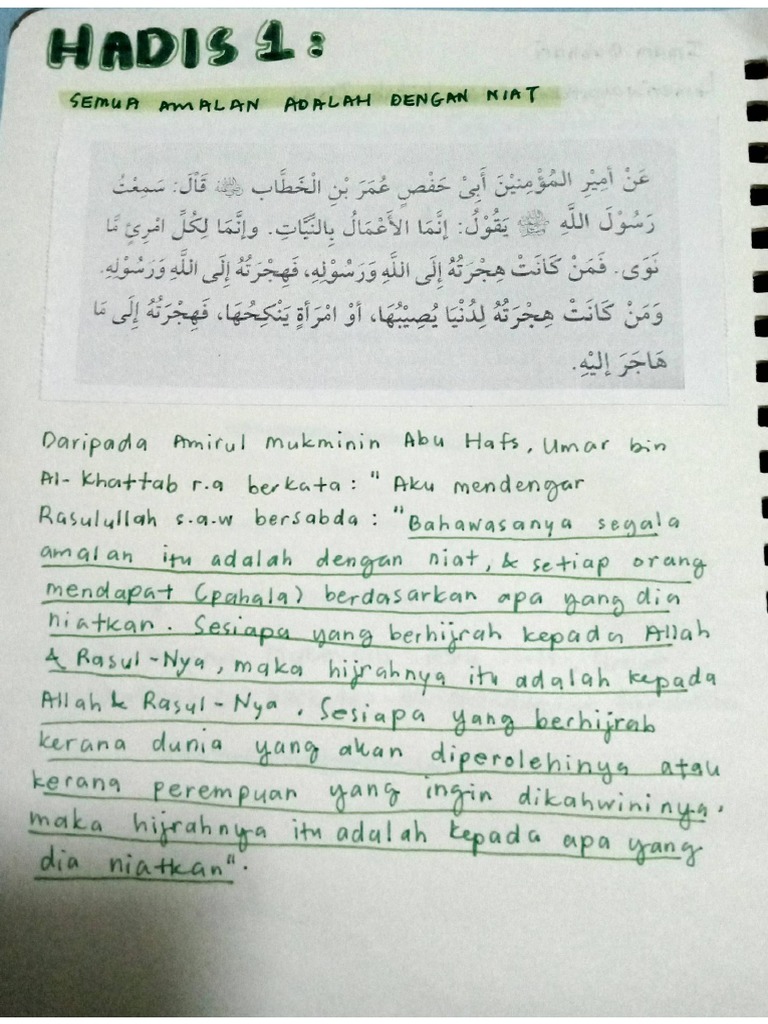 HADIS 1:
SEMUA AMALAN ADALAH DENGAN NIAT
عَنْ أَمِيْرِ المُؤْمِنِيْنَ أَبِيْ حَفْصٍ عُمَرَ بْنِ الْخَطَّابِ رضي الله عنه قَالَ: سَمِعْتُ
رَسُوْلَ اللَّهِ ﷺ يَقُوْلُ: إنَّمَا الأَعْمَالُ بِالنِّيَّاتِ. وإنَّمَا لِكُلِّ امْرِئٍ مَّا
نَوَى. فَمَنْ كَانَتْ هِجْرَتُهُ إِلَى اللَّهِ وَرَسُوْلِهِ، فَهِجْرَتُهُ إِلَى اللَّهِ وَرَسُوْلِهِ.
وَمَنْ كَانَتْ هِجْرَتُهُ لِدُنْيَا يُصِيْبُهَا، أَوْ امْرَأَةٍ يَنْكِحُهَا، فَهِجْرَتُهُ إِلَى مَا
هَاجَرَ إِلَيْهِ.
Daripada Amirul mukminin Abu Hafs, Umar bin
Al-Khattab r.a berkata: "Aku mendengar
Rasulullah s.a.w bersabda: "Bahawasanya segala
amalan itu adalah dengan niat, & setiap orang
mendapat (pahala) berdasarkan apa yang dia
niatkan. Sesiapa yang berhijrah kepada Allah
& Rasul-Nya, maka hijrahnya itu adalah kepada
Allah & Rasul-Nya. Sesiapa yang berhijrah
kerana dunia yang akan diperolehinya atau
kerana perempuan yang ingin dikahwininya,
maka hijrahnya itu adalah kepada apa yang
dia niatkan".